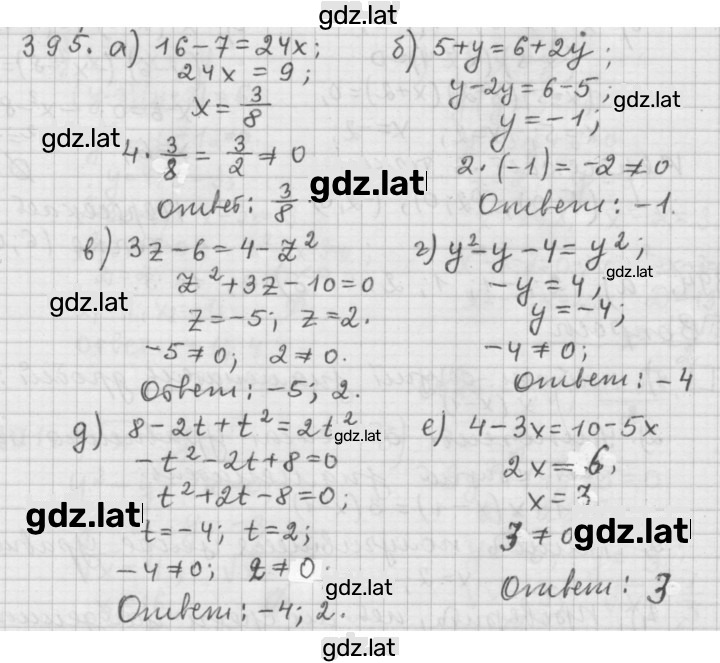 gdz.lat
395. а) 16-7=24x;
24x = 9;
x = 3/8
4 · 3/8 = 3/2 ≠ 0
Ответ: 3/8.
б) 5+y=6+2y;
y-2y=6-5;
y=-1;
2·(-1)=-2≠0
Ответ: -1.
gdz.lat
gdz.lat
gdz.lat
в) 3z-6=4-z²
z²+3z-10=0
z=-5; z=2.
-5≠0; 2≠0.
Ответ: -5; 2.
г) y²-y-4=y²;
-y=4;
y=-4;
-4≠0;
Ответ: -4
gdz.lat
gdz.lat
д) 8-2t+t²=2t²
-t²-2t+8=0
t²+2t-8=0;
t=-4; t=2;
-4≠0; 2≠0.
Ответ: -4; 2.
е) 4-3x=10-5x
2x=6;
x=3
3≠0
Ответ: 3
gdz.lat
gdz.lat
gdz.lat
gdz.lat
gdz.lat